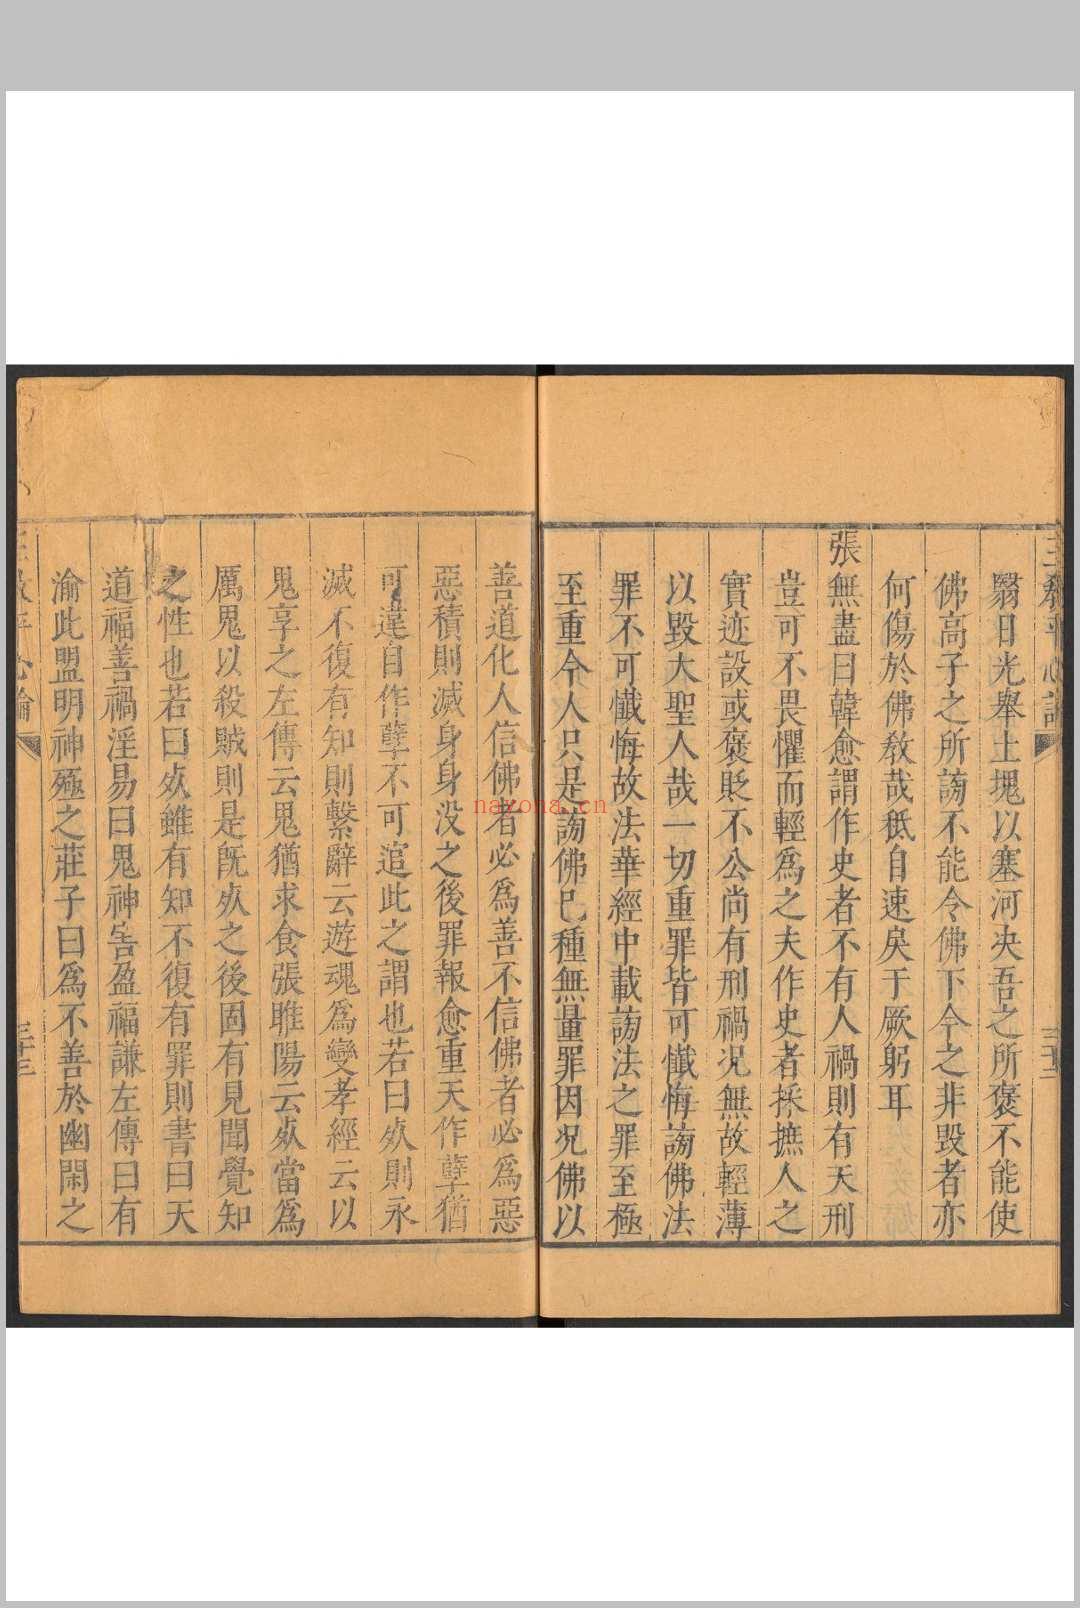 三教平心論
三十二
翳日光舉土塊以塞河決吾之所褒不能使
佛高子之所謗不能令佛下今之非毀者亦
何傷於佛教哉秪自速戾于厥躬耳
張無盡曰韓愈謂作史者不有人禍則有天刑
豈可不畏懼而輕爲之夫作史者採摭人之
實迹設或褒貶不公尚有刑禍况無故輕薄
以毀大聖人哉一切重罪皆可懺悔謗佛法
罪不可懺悔故法華經中載謗法之罪至極
至重今人只是謗佛巳種無量罪因况佛以
善道化人信佛者必爲善不信佛者必爲惡
惡積則滅身身没之後罪報愈重天作孽猶
可違自作孽不可逭此之謂也若曰死則永
滅不復有知則繫辭云遊魂爲變孝經云以
鬼享之左傳云鬼猶求食張睢陽云死當爲
厲鬼以殺賊則是旣死之後固有見聞覺知
之性也若曰死雖有知不復有罪則書曰天
道福善禍淫易曰鬼神害盈福謙左傳曰有
渝此盟明神殛之莊子曰爲不善於幽閒之
三教平心論
三十三
nayona.cn